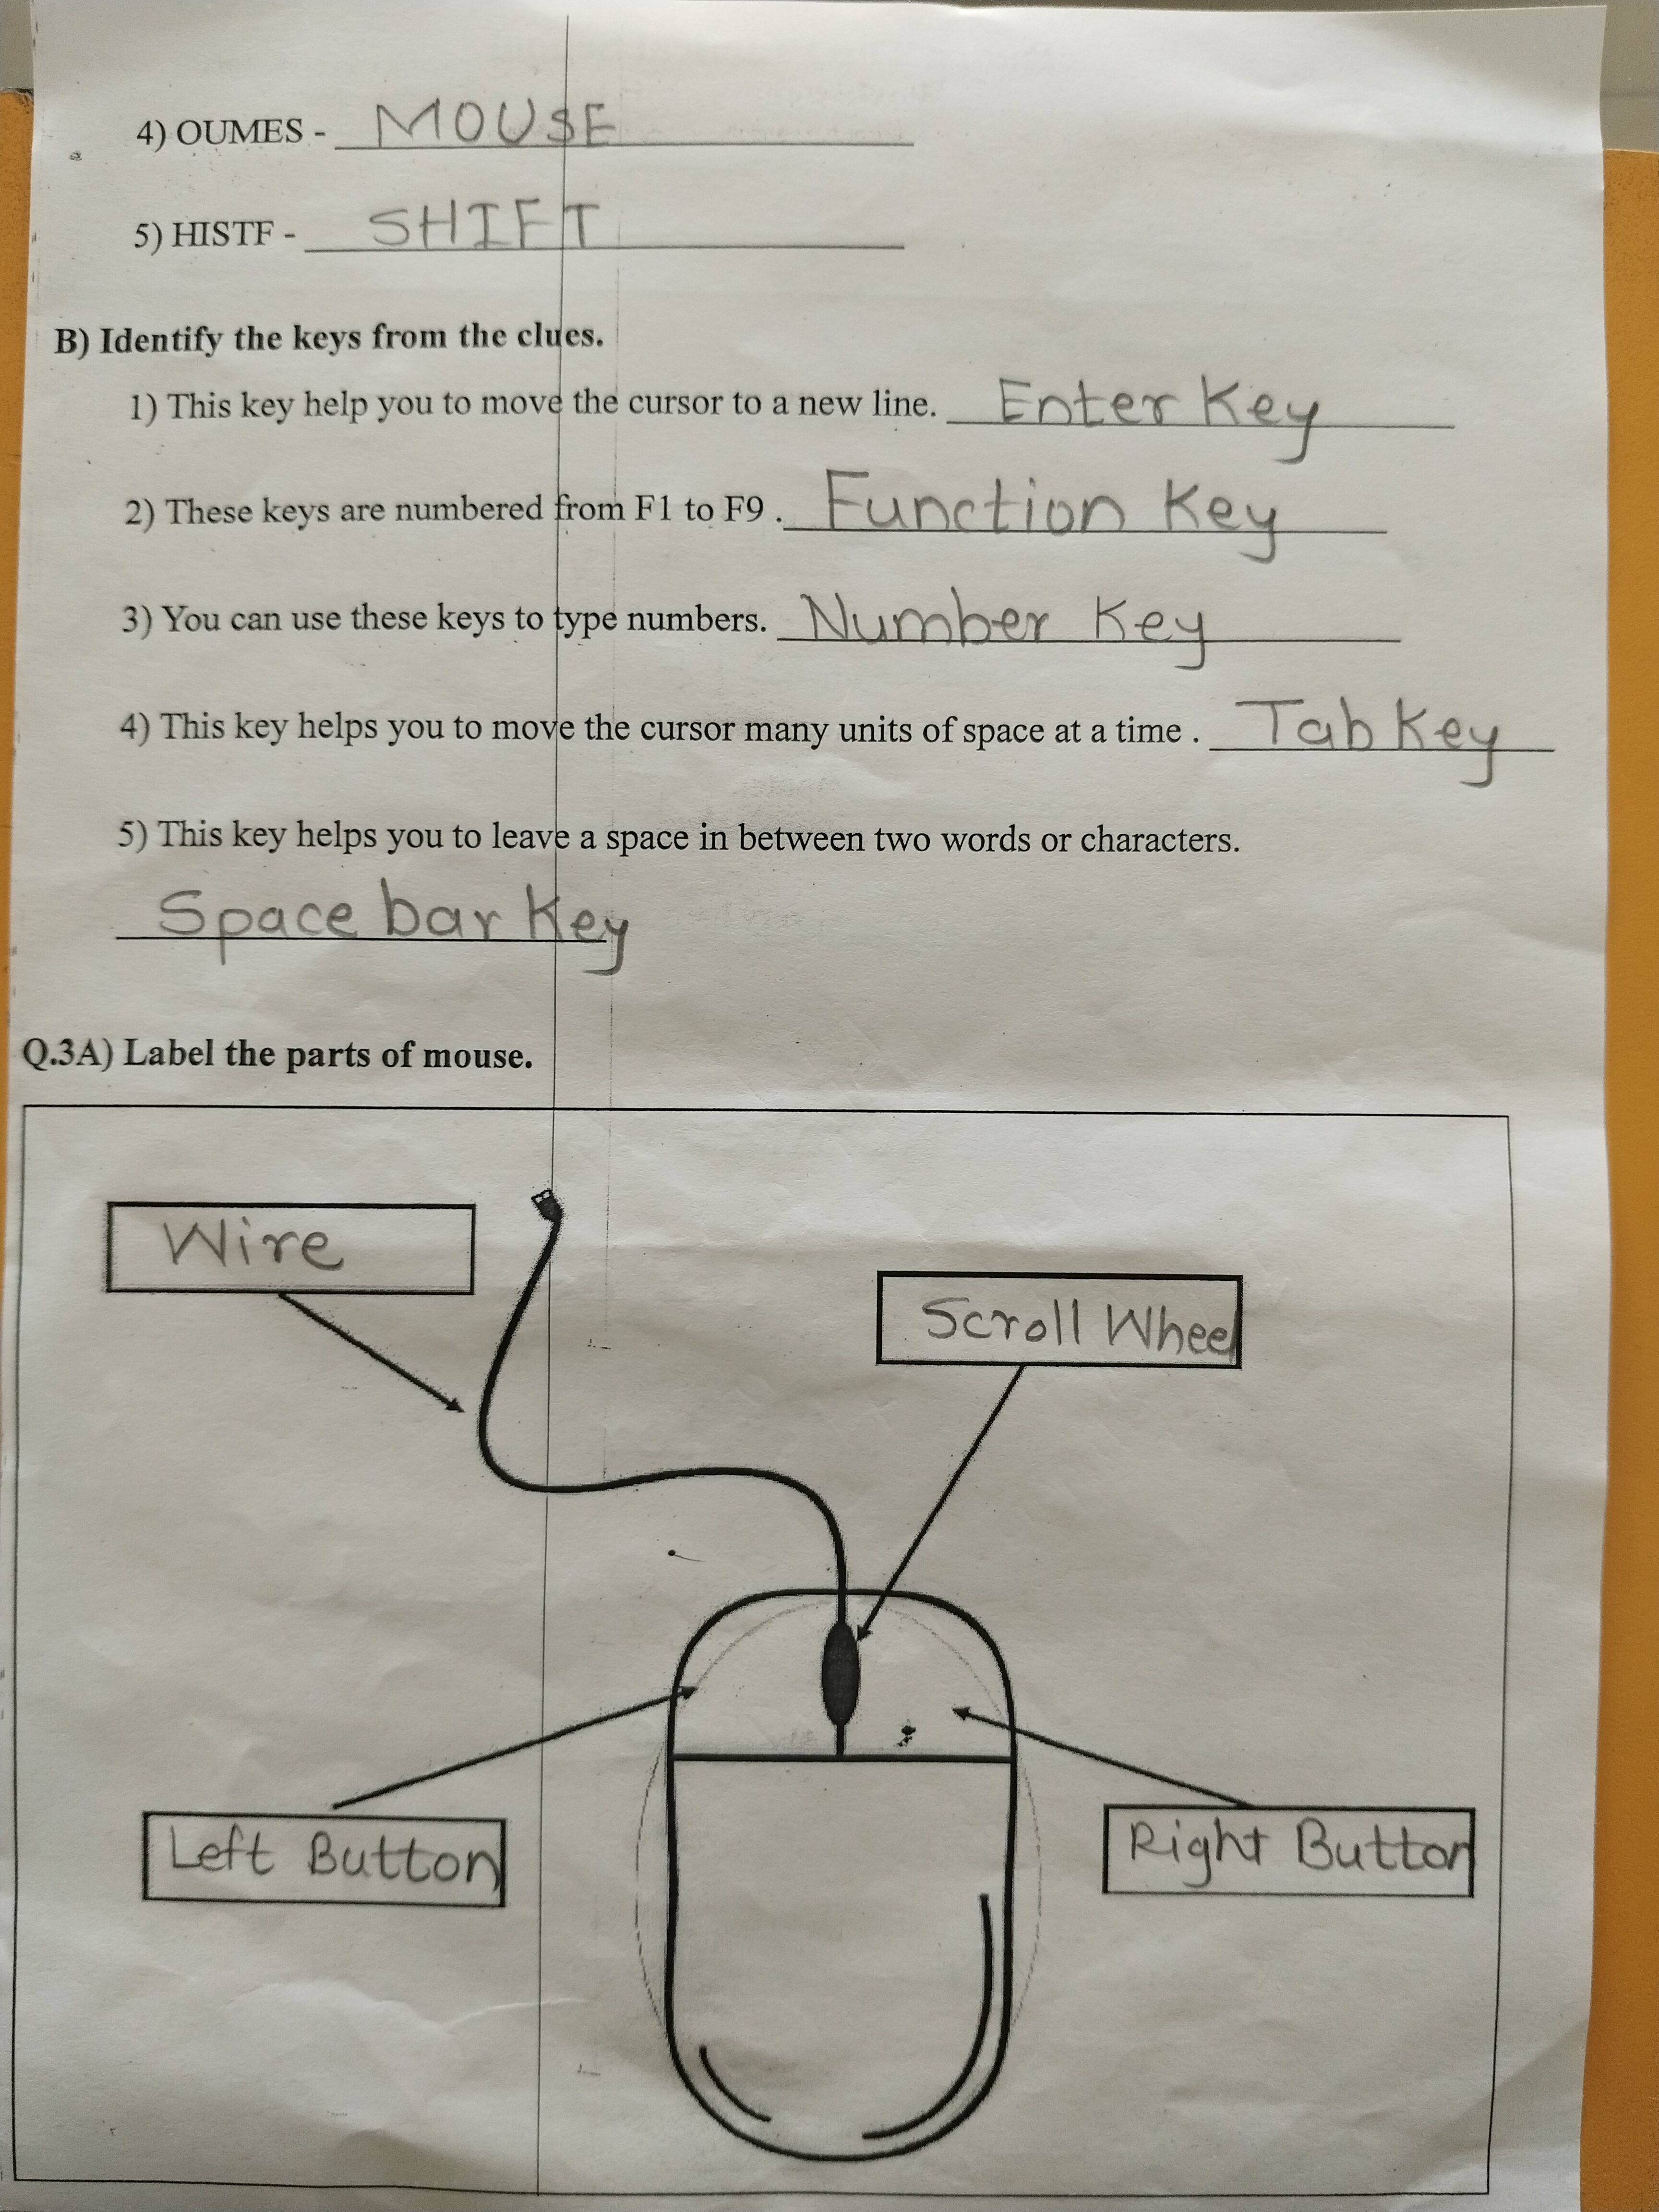 4) OUMES - MOUSE
5) HISTF - SHIFT
B) Identify the keys from the clues.
1) This key help you to move the cursor to a new line. Enter Key
2) These keys are numbered from F1 to F9 . Function Key
3) You can use these keys to type numbers. Number Key
4) This key helps you to move the cursor many units of space at a time . Tab Key
5) This key helps you to leave a space in between two words or characters.
Space bar Key
Q.3A) Label the parts of mouse.
Wire
Scroll Wheel
Left Button
Right Button